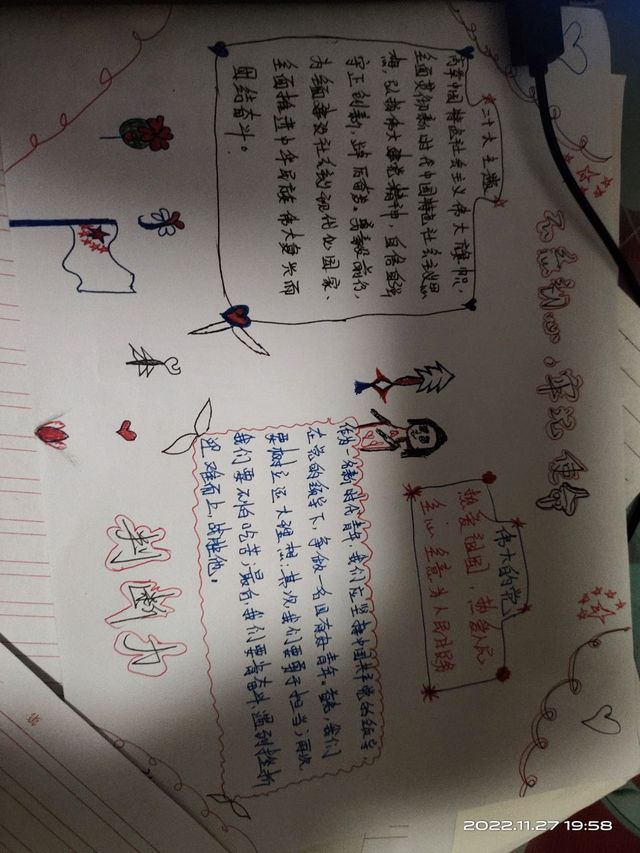 不忘初心、牢记使命
二十大主题
高举中国特色社会主义伟大旗帜,
全面贯彻新时代中国特色社会主义思
想,弘扬伟大建党精神,自信自强
守正创新,踔厉奋发、勇毅前行,
为全面建设社会主义现代化国家、
全面推进中华民族伟大复兴而
团结奋斗。
伟大的党
热爱祖国,热爱人民
全心全意为人民服务
作为一名新时代青年,我们应坚持中国共产党的领导
在党的领导下,争做一名具有好青年。首先,我们
要树立远大理想;其次我们要勇于担当;再次
我们要不怕吃苦;最后,我们要常奋斗遇到挫折
迎难而上,战胜他。
判断力
2022.11.27 19:58